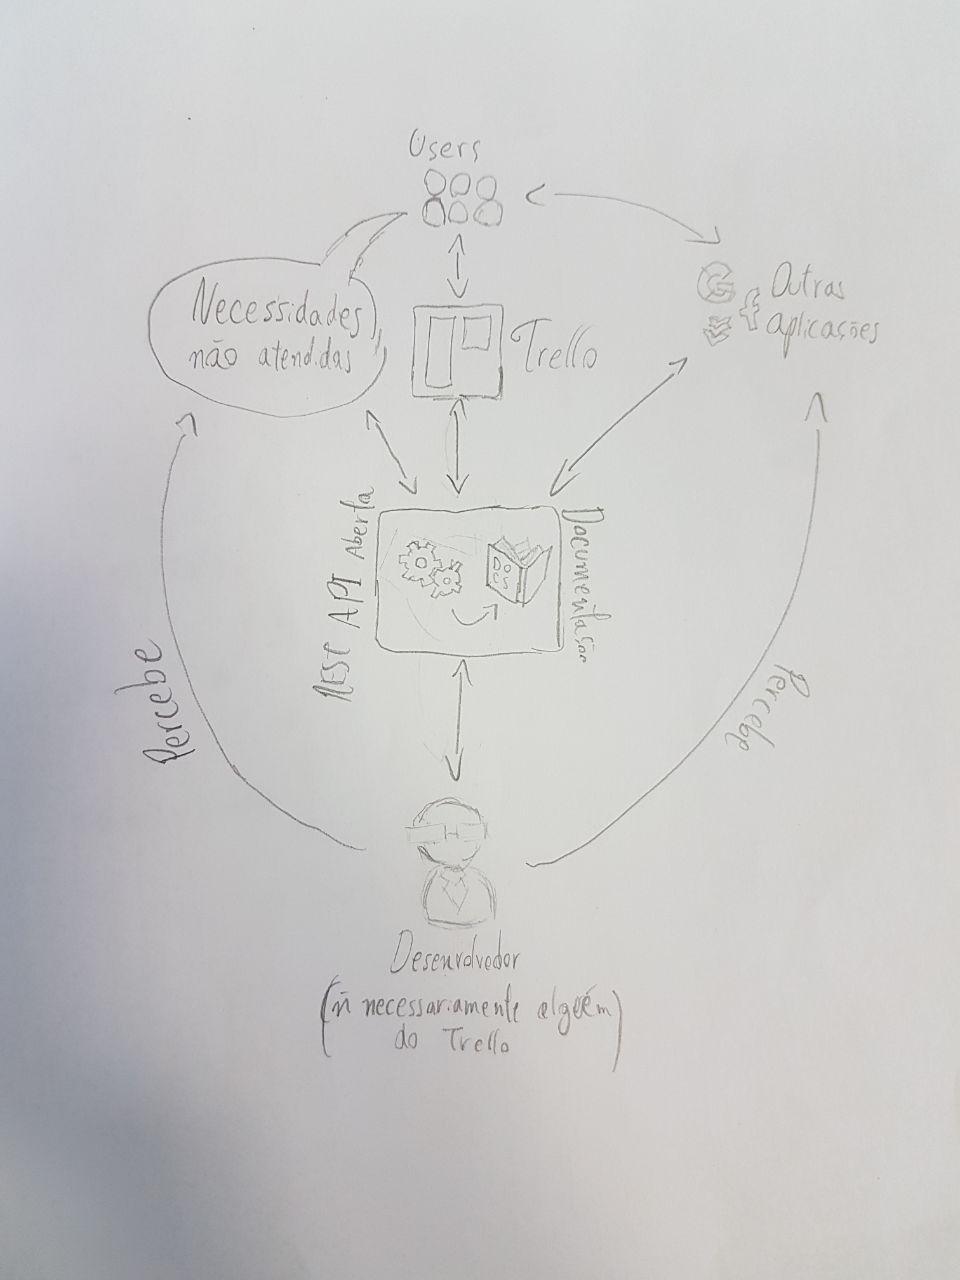 Users
Necessidades
não atendidas
Trello
G
f
Outras
aplicações
REST API Aberta
DOCS
Documentação
Percebe
Percebe
Desenvolvedor
(ñ necessariamente alguém
do Trello)